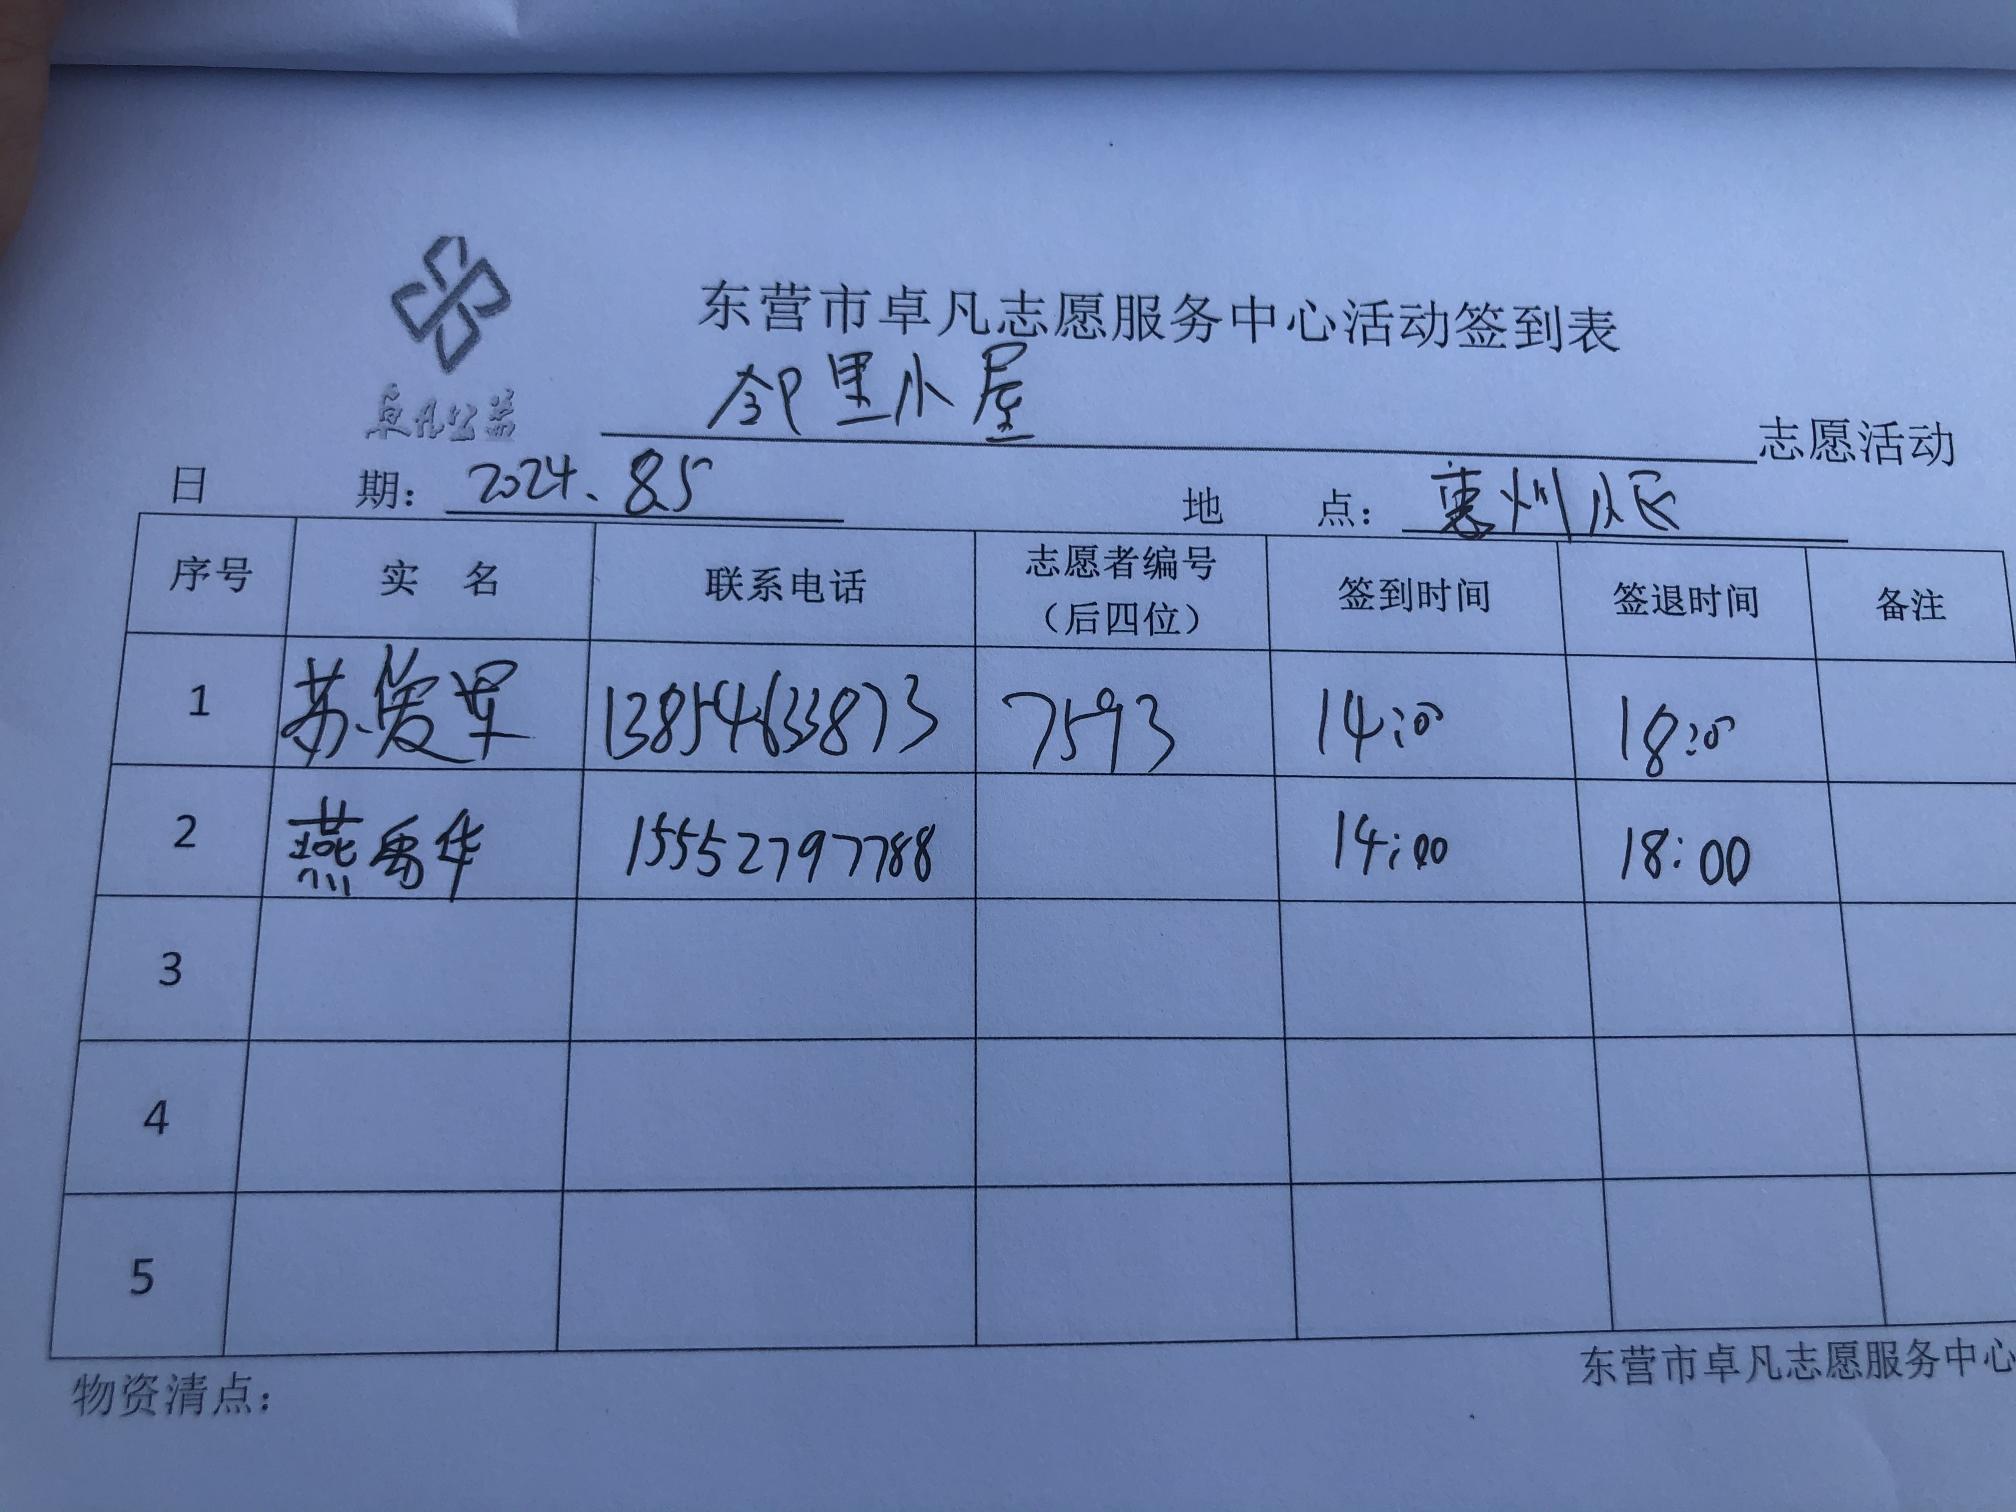 东营市卓凡志愿服务中心活动签到表
卓凡公益
邻里小屋 志愿活动
日 期: 2024.8.5 地 点: 惠州小区
序号 实 名 联系电话 志愿者编号（后四位） 签到时间 签退时间 备注
1 苏爱军 13854633873 7593 14:00 18:00
2 燕禹华 15552797788 14:00 18:00
3
4
5
物资清点:
东营市卓凡志愿服务中心